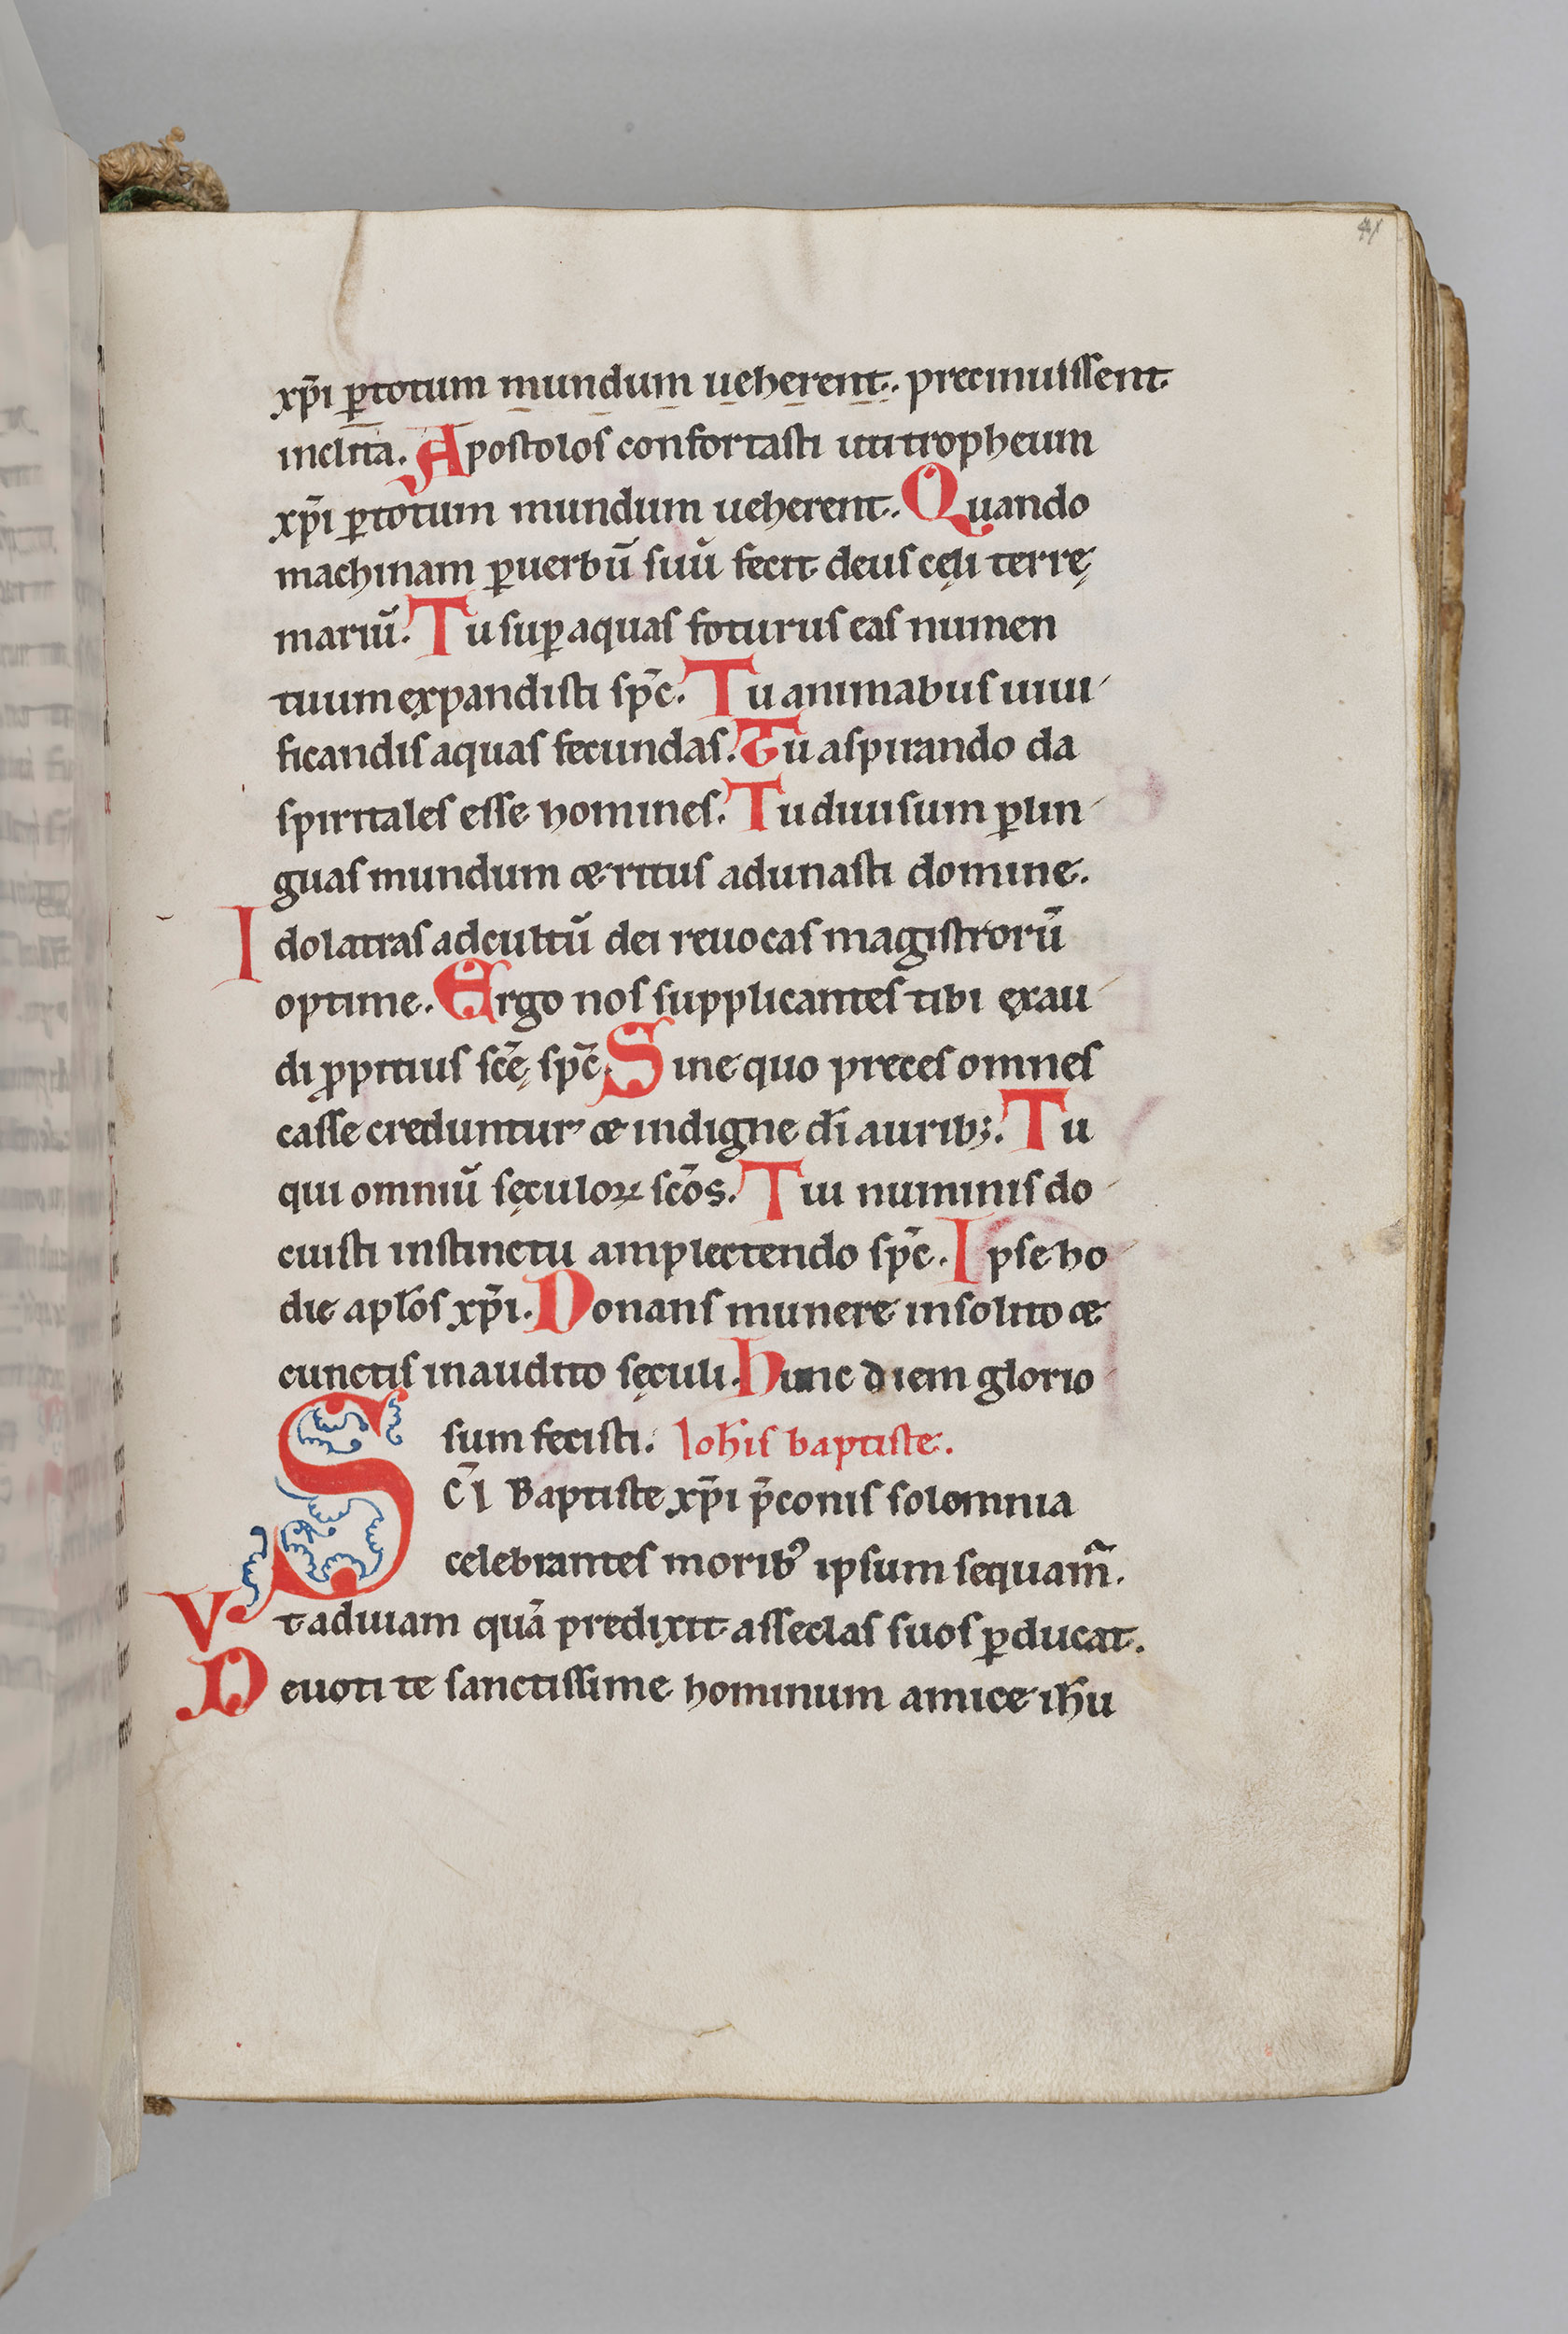 41
xp̄i ꝑtotum mundum ueherent. precinuissent
inclita. Apostolos confortasti uti tropheum
xp̄i ꝑtotum mundum ueherent. Quando
machinam ꝑuerbū suū fecit deus cęli terrę
mariū. Tu suꝑ aquas foturus eas numen
tuum expandisti sp̄c. Tu animabus uiui
ficandis aquas fecundas. Tu aspirando da
spiritales esse homines. Tu diuisum ꝑlin
guas mundum & ritus adunasti domine.
Idolatras adcultū dei reuocas magistrorū
optime. Ergo nos supplicantes tibi exau
di ꝓpitius sc̄ę sp̄c. Sine quo preces omnes
casse creduntur & indigne dī aurib;. Tu
qui omniū sęculoꝝ sc̄os. Tui numinis do
cuisti instinctu amplectendo sp̄c. Ipse ho
die apłos xp̄i. Donans munere insolito &
cunctis inaudito sęculi. hunc diem glorio
sum fecisti. Ioħis baptiste.
Sc̄i Baptiste xp̄i p̄conis solemnia
celebrantes moribꝰ ipsum sequam̄.
Vt aduiam quā predixit asseclas suos ꝑducat.
Deuoti te sanctissime hominum amice iħu